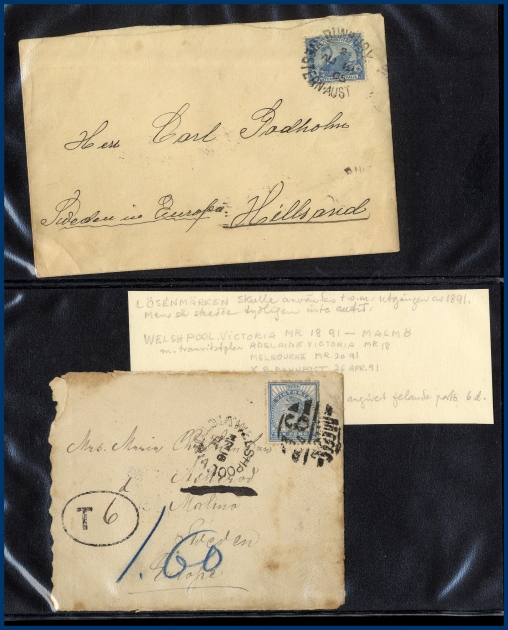 Herr Carl Godholm
Sweden in Europa. Hillsand
LÖSENMÄRKEN skulle användas t.o.m. utgången av 1891.
Men det skedde tydligen inte alltid.
WELSHPOOL. VICTORIA MR 18 91 — MALMÖ
m. transitstplar ADELAIDE VICTORIA MR 18
MELBOURNE MR 20 91
26 APR. 91
angivet felande porto 6 d.
WELSHPOOL
Mrs. Maria
d
T 6
Malmo
Sweden
Europe
1.60